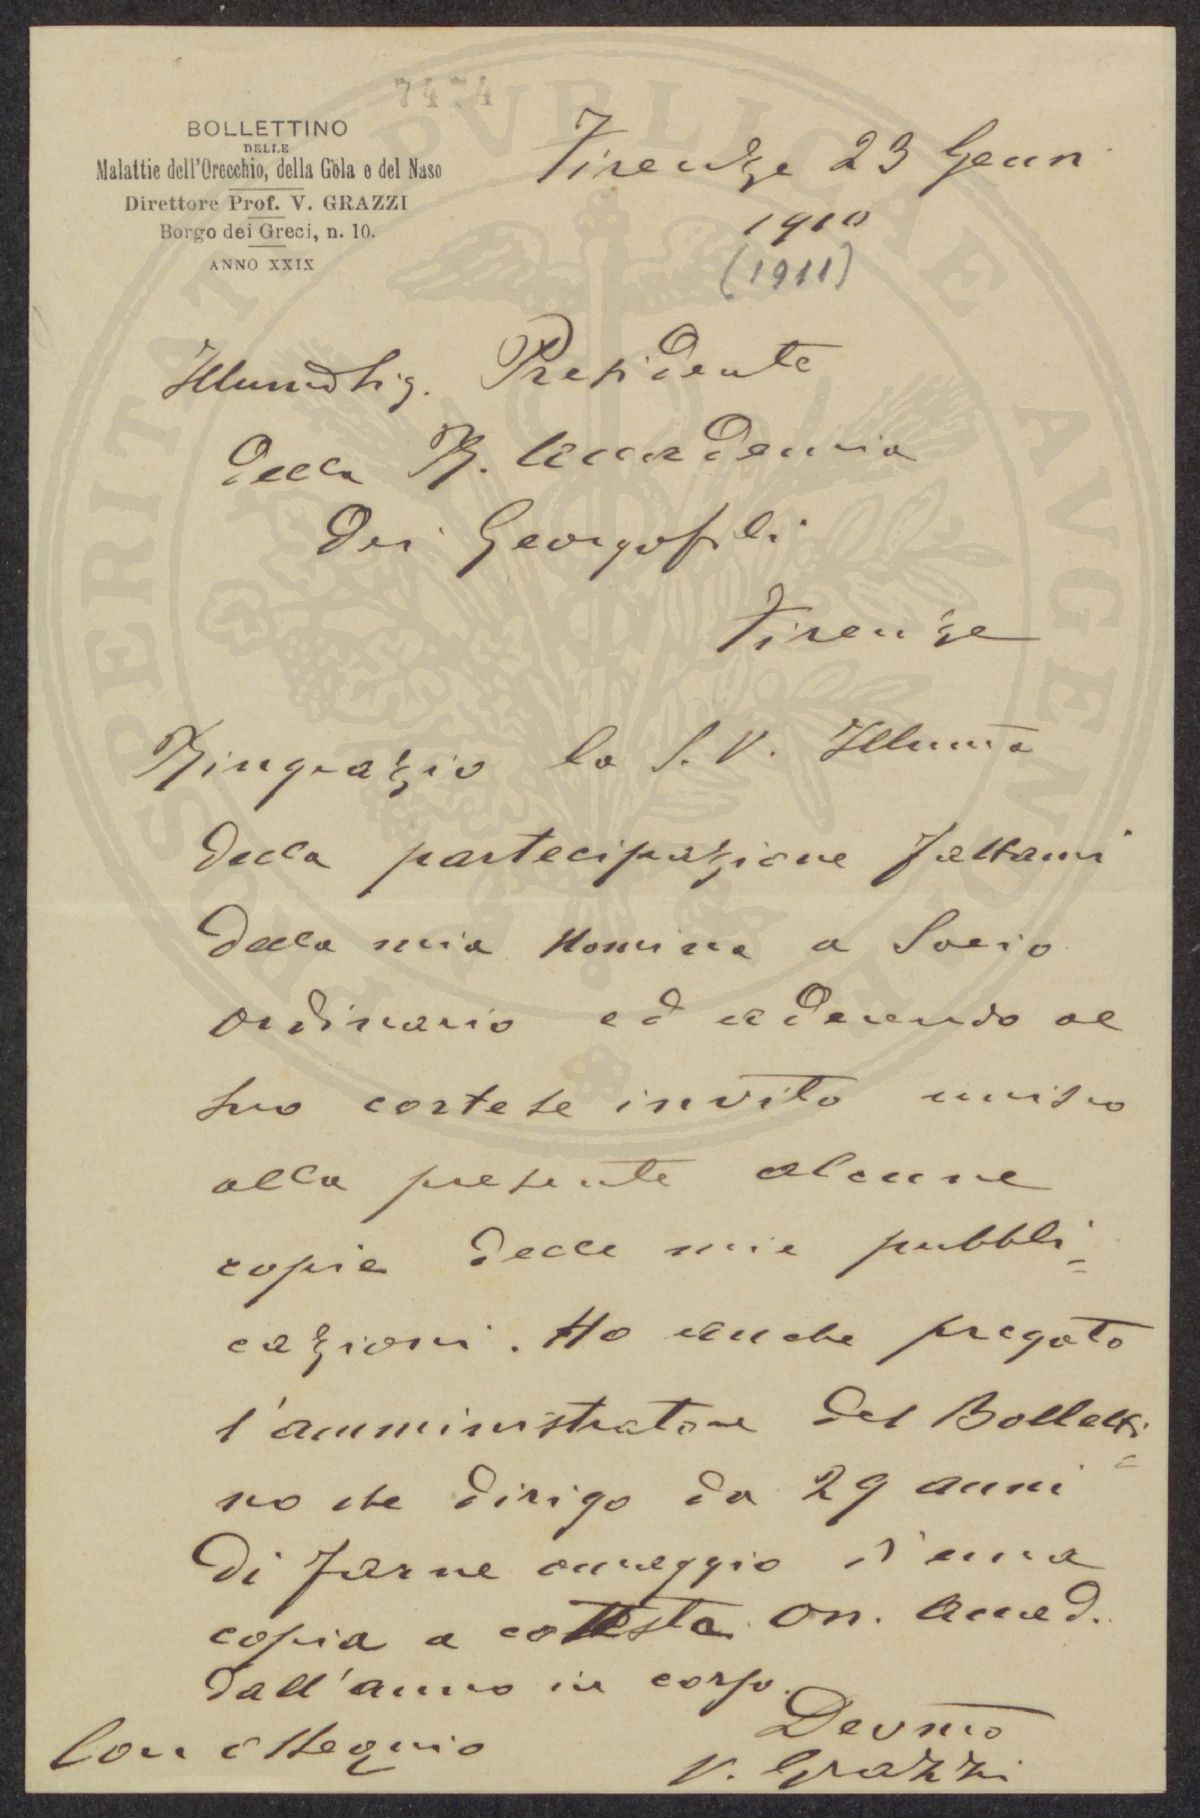 7474
BOLLETTINO
DELLE
Malattie dell'Orecchio, della Gola e del Naso
Direttore Prof. V. GRAZZI
Borgo dei Greci, n. 10.
ANNO XXIX
Firenze 23 Genn
1910
(1911)
Illmo Sig. Presidente
della R. Accademia
dei Georgofili
Firenze
Ringrazio la S. V. Illma
della partecipazione fattami
della mia nomina a Socio
ordinario ed aderendo al
suo cortese invito unisco
alla presente alcune
copie delle mie pubbli=
cazioni. Ho anche pregato
l'amministratore del Bolletti=
no che dirigo da 29 anni
di farne omaggio d'una
copia a cotesta On. Accad.
dall'anno in corso.
Con ossequio
Devmo
V. Grazzi
PROSPERITATI PVBLICAE AVGENDAE